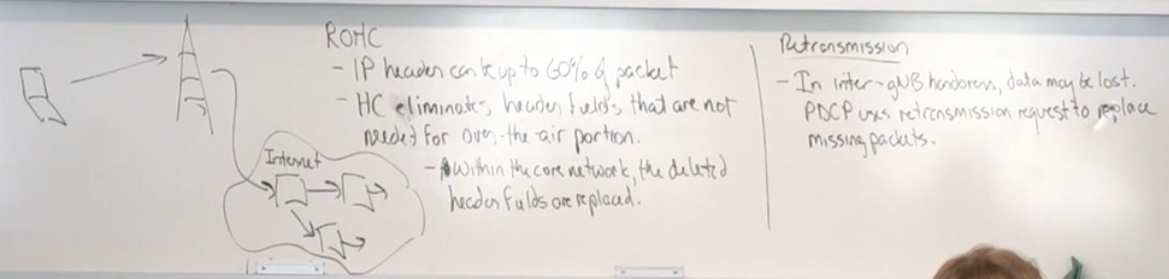 ROHC
- IP header can be up to 60% of packet
- HC eliminates header fields that are not
needed for over-the-air portion.
- Within the core network, the deleted
header fields are replaced.
Internet
Retransmission
- In inter-gNB handovers, data may be lost.
PDCP uses retransmission request to replace
missing packets.